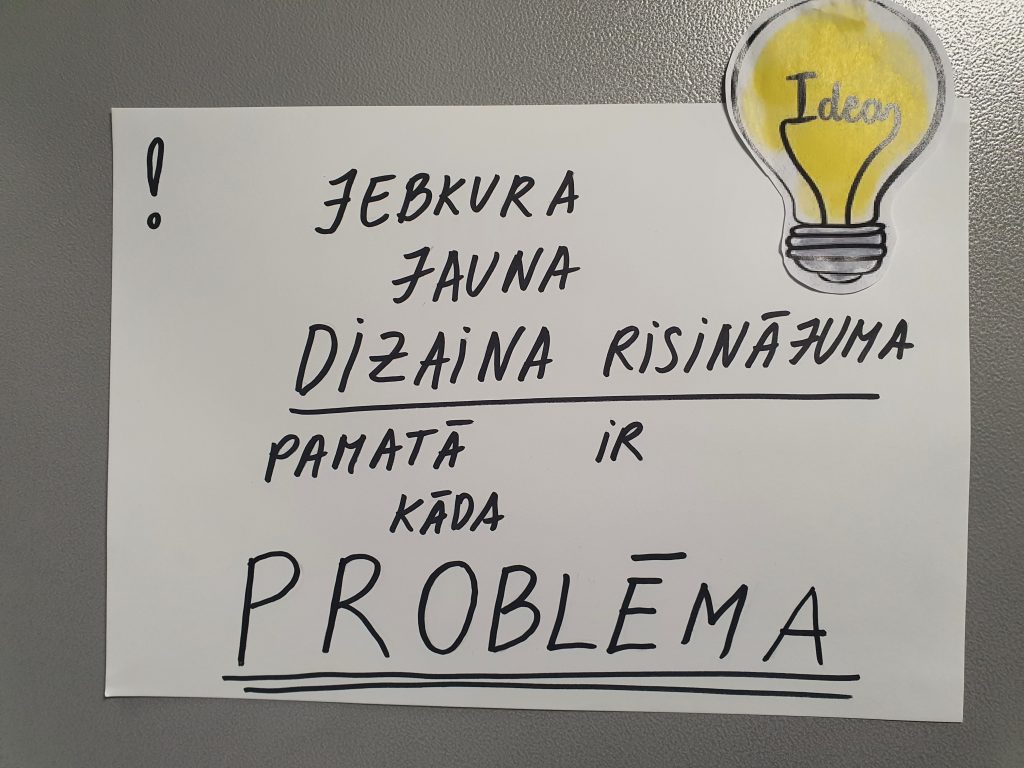 Idea
!
JEBKURA
JAUNA
DIZAINA RISINĀJUMA
PAMATĀ IR
KĀDA
PROBLĒMA